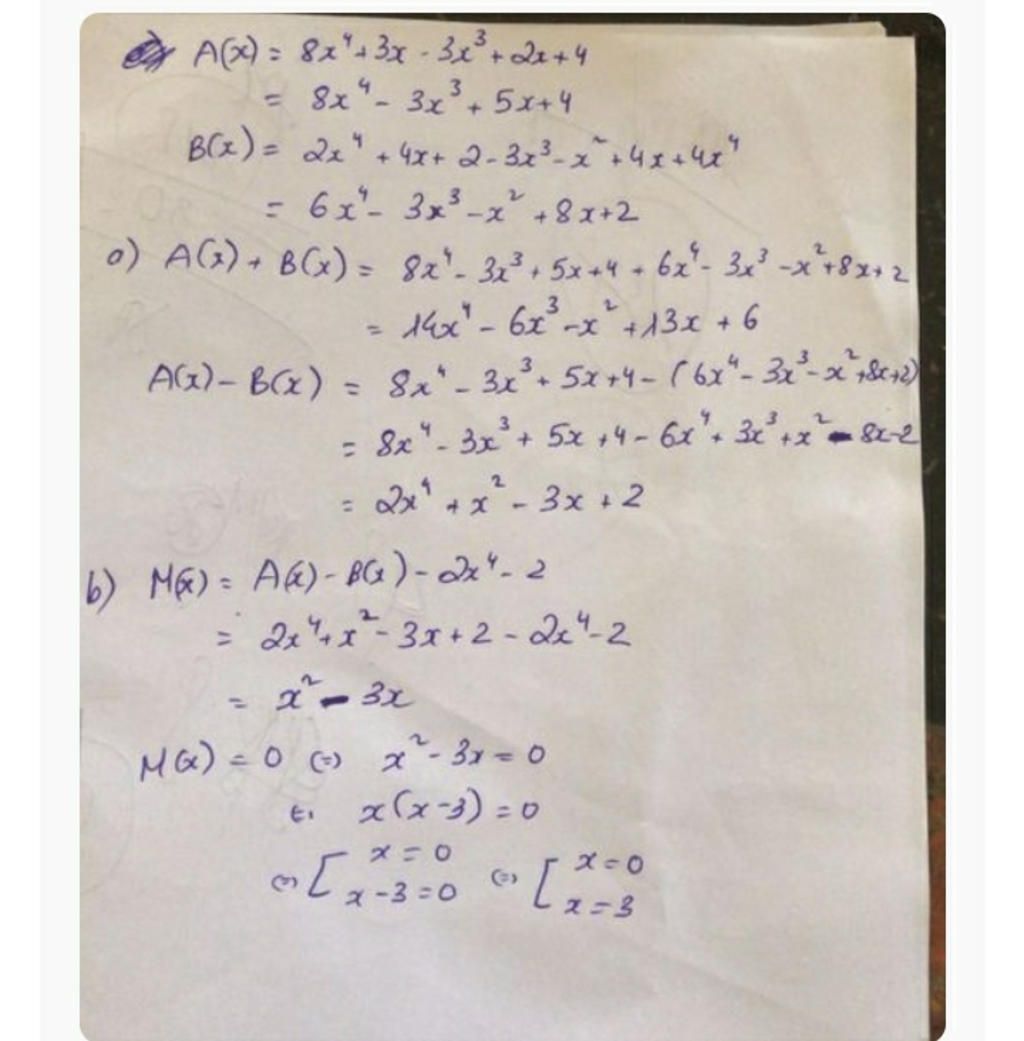 A(x) = 8x⁴ + 3x - 3x³ + 2x + 4
= 8x⁴ - 3x³ + 5x + 4
B(x) = 2x⁴ + 4x + 2 - 3x³ - x² + 4x + 4x⁴
= 6x⁴ - 3x³ - x² + 8x + 2
a) A(x) + B(x) = 8x⁴ - 3x³ + 5x + 4 + 6x⁴ - 3x³ - x² + 8x + 2
= 14x⁴ - 6x³ - x² + 13x + 6
A(x) - B(x) = 8x⁴ - 3x³ + 5x + 4 - (6x⁴ - 3x³ - x² + 8x + 2)
= 8x⁴ - 3x³ + 5x + 4 - 6x⁴ + 3x³ + x² - 8x - 2
= 2x⁴ + x² - 3x + 2
b) M(x) = A(x) - B(x) - 2x⁴ - 2
= 2x⁴ + x² - 3x + 2 - 2x⁴ - 2
= x² - 3x
M(x) = 0 (=) x² - 3x = 0
x(x - 3) = 0
(=) [ x = 0 (=) [ x = 0
x - 3 = 0 x = 3